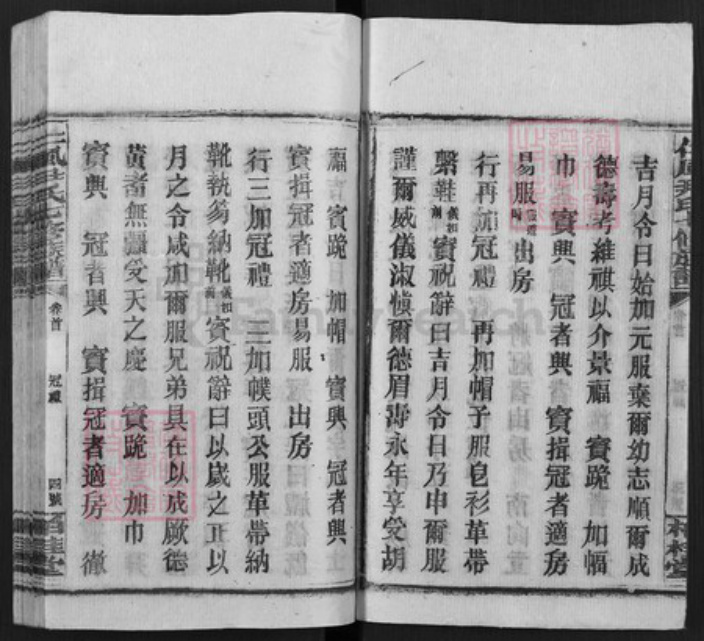 吉月令日始加元服棄爾幼志順爾成
德壽考維祺以介景福 賓跪 加幅
巾 賓興 冠者興 賓揖冠者適房
易服 出房
行再加冠禮 再加帽子服皂衫革帶
繫鞋 賓祝辭曰吉月令日乃申爾服
謹爾威儀淑慎爾德眉壽永年享受胡
福 賓跪 加帽 賓興 冠者興
賓揖冠者適房易服 出房
行三加冠禮 三加幞頭公服革帶納
靴執笏納靴 賓祝辭曰以歲之正以
月之令咸加爾服兄弟具在以成厥德
黃耇無疆受天之慶 賓跪 加巾
賓興 冠者興 賓揖冠者適房 徹
卷首
冠禮
四號